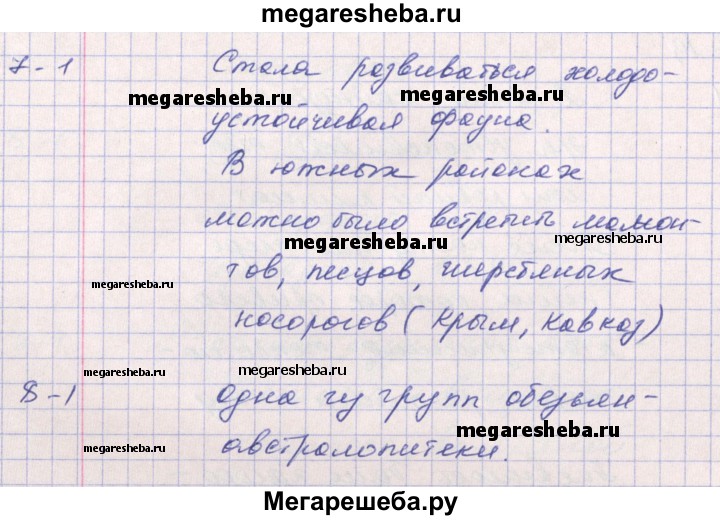 megaresheba.ru
7-1 Стала развиваться холодо-
megaresheba.ru megaresheba.ru
устойчивая фауна.
В южных районах
можно было встретить мамон-
megaresheba.ru megaresheba.ru
тов, песцов, шерстяных
megaresheba.ru
носорогов (Крым, Кавказ)
megaresheba.ru megaresheba.ru
8-1 одна из групп обезьян-
megaresheba.ru
австралопитеки.
megaresheba.ru
Мегарешеба.ру